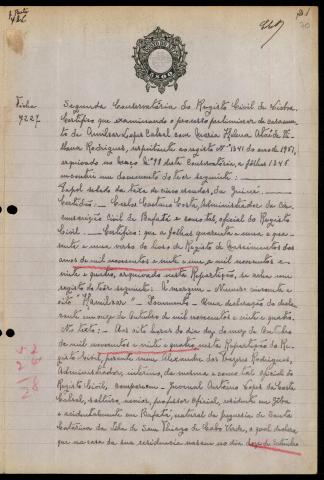 Segunda Conservatória do Registo Civil de Lisboa.
Certifico que examinando o processo preliminar de casamen-
to de Amilcar Lopes Cabral com Maria Helena Ataíde Vi-
lhena Rodrigues, respeitante ao registo nº 1341 do ano de 1951,
arquivado no maço nº 98 desta Conservatória, a folhas 1346
encontrei um documento do teor seguinte:
Papel selado da taxa de cinco escudos, da Guiné.
Certidão. Carlos Caetano Costa, Administrador da Cir-
cunscrição Civil de Bafatá e como tal, oficial do Registo
Civil. Certifico: que a folhas quarenta e uma a qua-
renta e uma verso do livro de Registo de Nascimentos dos
anos de mil novecentos e vinte e um a mil novecentos e
vinte e quatro, arquivado nesta Repartição, se acha um
registo do teor seguinte: À margem - Numero cincoenta e
oito "Hamilcar" - Documento - Uma declaração do decla-
rante em mez de Outubro de mil novecentos e vinte e quatro.
No texto: - Às oito horas do dia dez do mez de Outubro
de mil novecentos e vinte e quatro, nesta Repartição do Re-
gisto Civil, perante mim, Alexandre dos Prazeres Rodrigues,
Administrador, interino, da mesma e como tal oficial do
Registo Civil, compareceu - Juvenal António Lopes da Costa
Cabral, solteiro, maior, professor oficial, residente em Geba
e acidentalmente em Bafatá, natural da freguesia de Santa
Catarina da Ilha de San Thiago de Cabo Verde, o qual declarou
que na casa da sua residencia nasceu no dia doze de Setembro
Ficha
9227